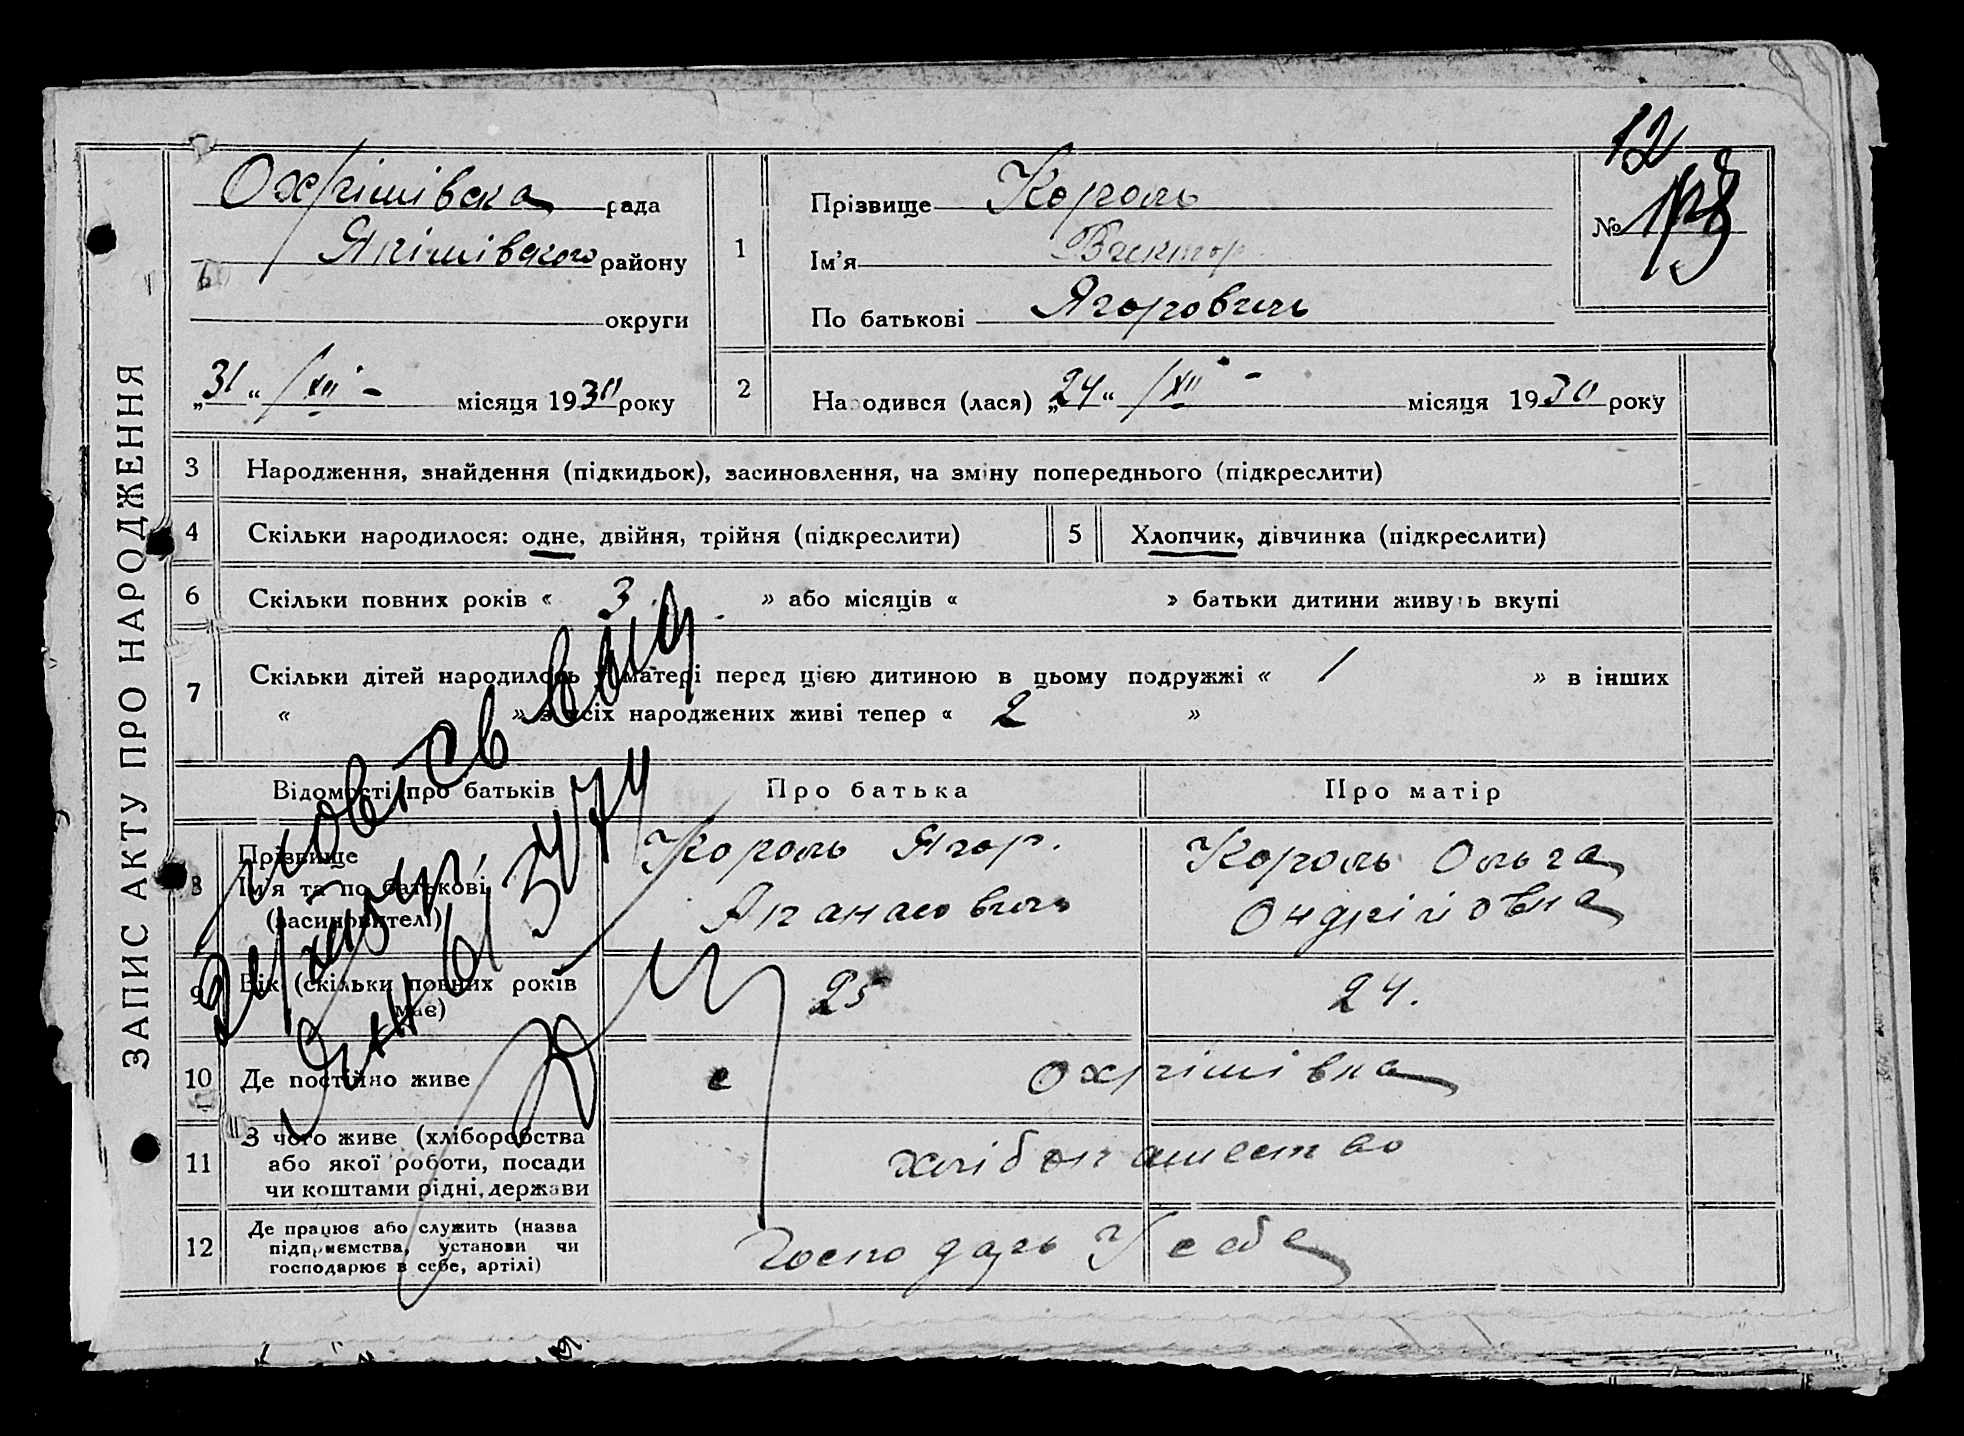 ЗАПИС АКТУ ПРО НАРОДЖЕННЯ
Охрімівска рада
Якімівского району
округи
„31“ /XII - місяця 1930 року
12
№
1 Прізвище Король
Ім'я Віктор
По батькові Ягорович
2 Народився (лася) „24“ /XII - місяця 1930 року
3 Народження, знайдення (підкидьок), засиновлення, на зміну попереднього (підкреслити)
4 Скільки народилося: одне, двійня, трійня (підкреслити)
5 Хлопчик, дівчинка (підкреслити)
6 Скільки повних років « 3 » або місяців « » батьки дитини живуть вкупі
7 Скільки дітей народилось у матері перед цією дитиною в цьому подружжі « 1 » в інших
« » з усіх народжених живі тепер « 2 »
Відомості про батьків Про батька Про матір
8 Прізвище
Ім'я та по батькові
(засиновителі)
Король Ягор.
Апанасович
Король Ольга
Ондріівна
9 Вік (скільки повних років має) 25 24.
10 Де постійно живе с Охрімівка
11 З чого живе (хліборобства
або якої роботи, посади
чи коштами рідні, держави
хлібопашество
12 Де працює або служить (назва
підприємства, установи чи
господарює в себе, артілі)
Господарь У себе